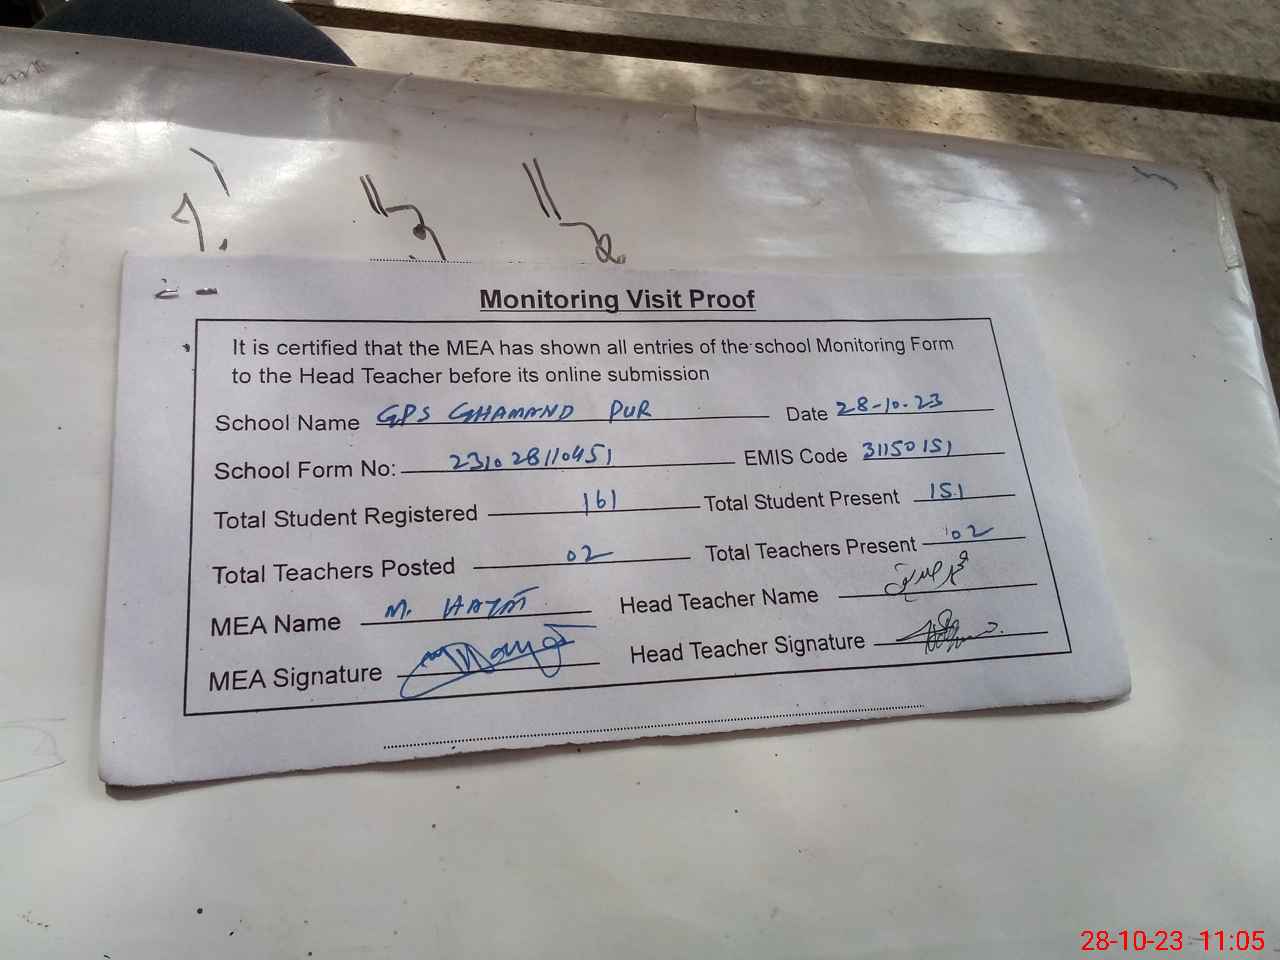 Monitoring Visit Proof
It is certified that the MEA has shown all entries of the school Monitoring Form
to the Head Teacher before its online submission
School Name GPS GHAMAND PUR Date 28-10-23
School Form No: 231028110451 EMIS Code 31150151
Total Student Registered 161 Total Student Present 151
Total Teachers Posted 02 Total Teachers Present 02
MEA Name M. HAYAT Head Teacher Name
MEA Signature Head Teacher Signature
28-10-23 11:05